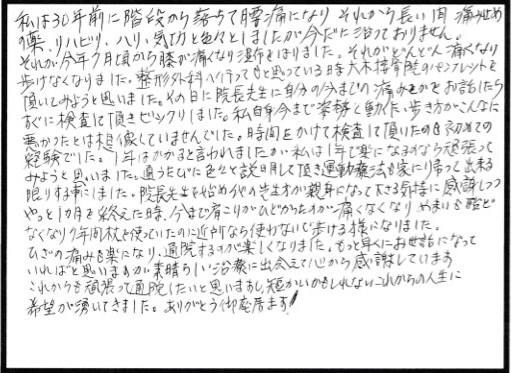 私は30年前に階段から落ちて腰痛になり それから長い間 痛み止め
の薬、リハビリ、ハリ、気功と色々としましたが今だに治っておりません。
それが今年7月頃から膝が痛くなり湿布をはりました。それがどんどん痛くなり
歩けなくなりました。整形外科へ行ってもと思っている時大木接骨院のパンフレットを
頂いてみようと思いました。その日に院長先生に自分の今までの痛みをお話したら
すぐに検査して頂きビックリしました。私自身今まで姿勢と動作、歩き方がこんなに
悪かったとは想像していませんでした。時間をかけて検査して頂いたのも初めての
経験でした。1年はかかると言われましたが私は1年で楽になるのなら頑張って
みようと思いました。通うたびに色々と説明して頂き運動療法も家に帰って出来る
限りする事にしました。院長先生を始め他の先生方が親身になって下さる気持に感謝しつつ
やっと1か月を終えた時、今まで肩こりがひどかったのが痛くなくなり めまいも殆ど
なくなり 9年間杖を使っていたのに近所なら使わないで歩ける様になりました。
ひざの痛みも楽になり、通院するのが楽しくなりました。もっと早くにお世話になって
いればと思いますが素晴らしい治療に出会えて心から感謝しています
これからも頑張って通院したいと思いますし、短かいかもしれないこれからの人生に
希望が湧いてきました。ありがとう御座居ます!